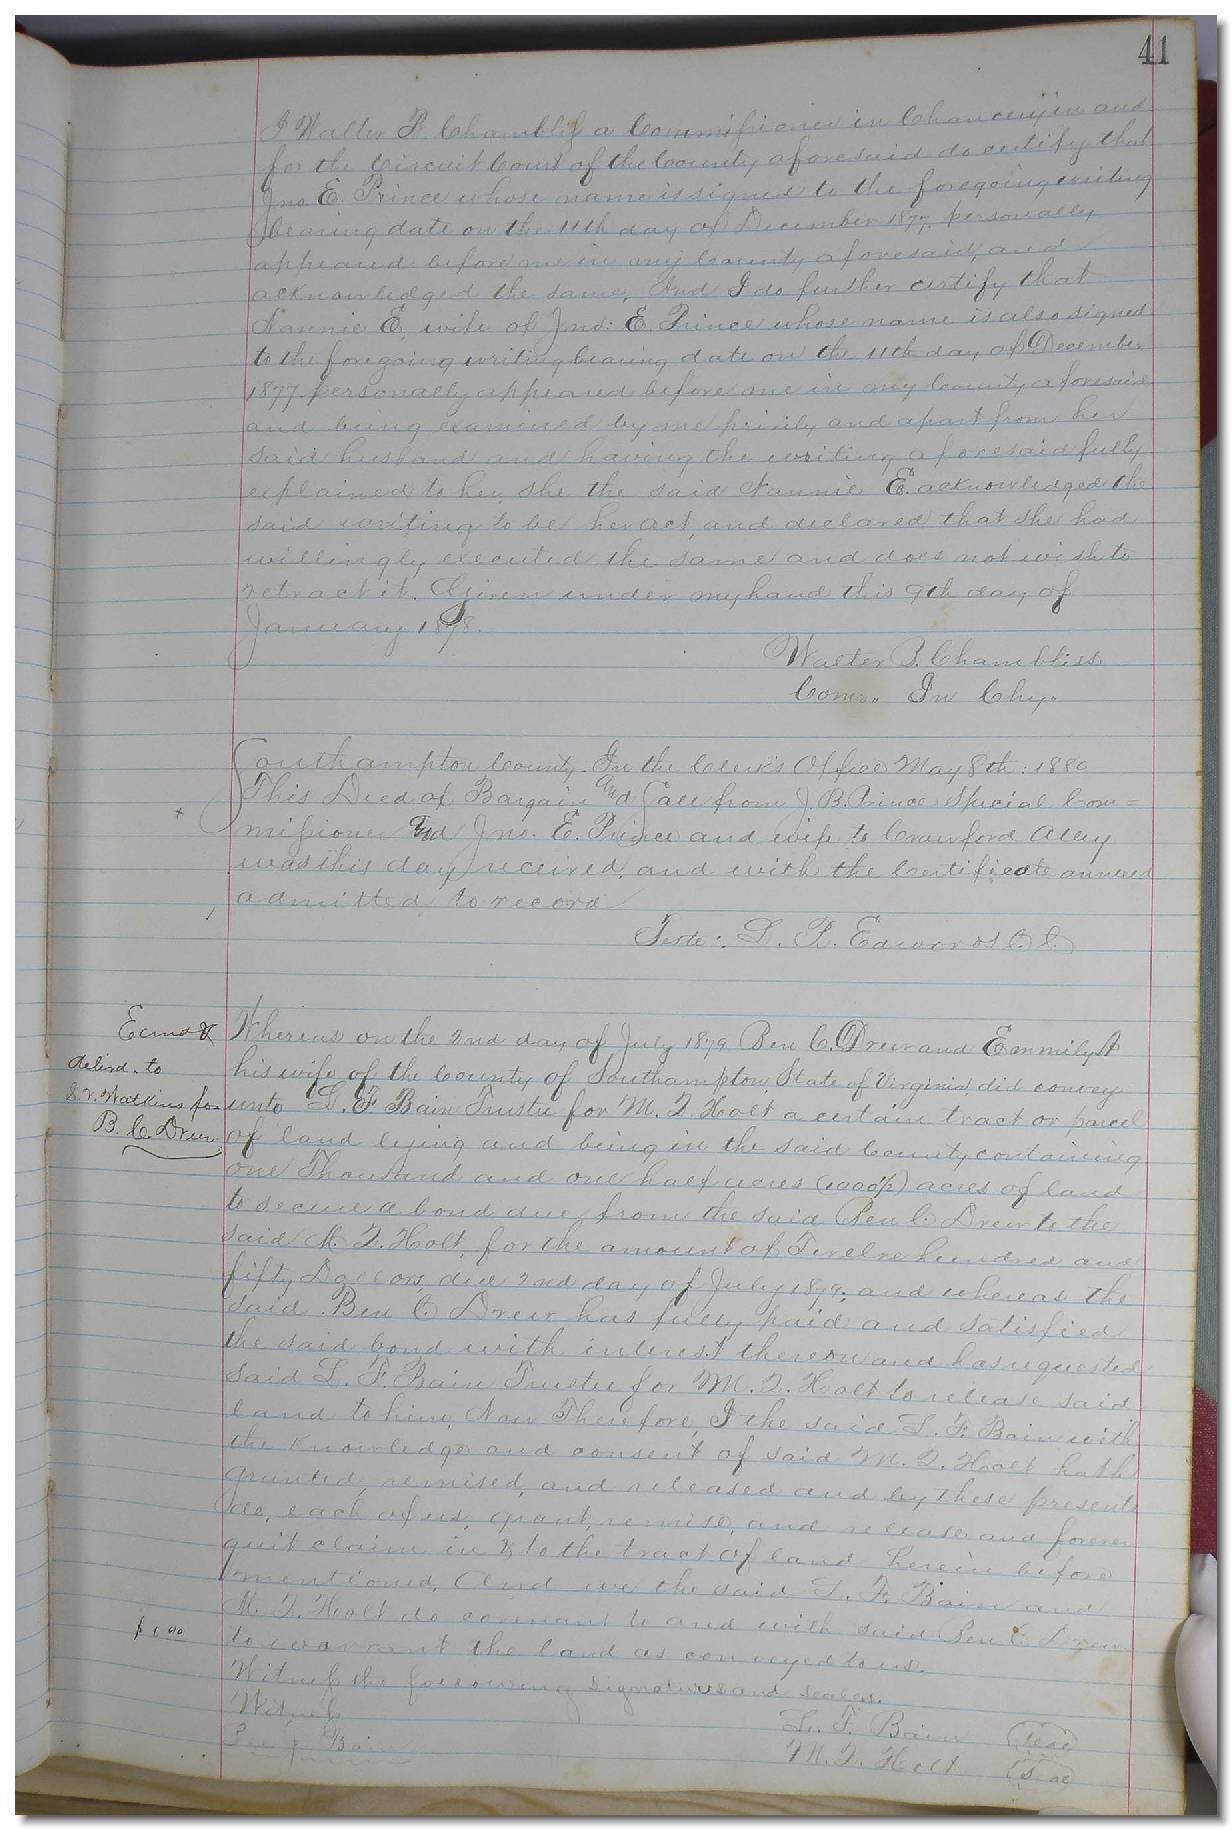 41
I Walter P. Chambliss a Commissioner in Chancery in and
for the Circuit Court of the County aforesaid do certify that
Jno E. Prince whose name is signed to the foregoing writing
bearing date on the 11th day of December 1877, personally
appeared before me in my County aforesaid, and
acknowledged the same, And I do further certify that
Nannie E. wife of Jno: E. Prince whose name is also signed
to the foregoing writing bearing date on the 11th day of December
1877 personally appeared before me in my County aforesaid
and being examined by me privily and apart from her
said husband and having the writing aforesaid fully
explained to her, she the said Nannie E. acknowledged the
said writing to be her act, and declared that she had
willingly executed the same and does not wish to
retract it. Given under my hand this 9th day of
January 1878.
Walter P. Chambliss
Comr. In Chy.
Southampton County. In the Clerk's Office May 8th: 1880
This Deed of Bargain and Sale from J. B. Prince Special Com=
missioner and Jno. E. Prince and wife to Crawford
was this day received, and with the Certificate annexed
admitted to record
Teste: L. R. Edwards C. C.
Examd &
delivd. to
Watkins for
B. C. Drew
Whereas on the 2nd day of July 1879 Ben C. Drew and Emmily A
his wife of the County of Southampton, State of Virginia, did convey
unto L. F. Bain Trustee for M. T. Holt a certain tract or parcel
of land lying and being in the said County containing
one Thousand and one half acres (1000½) acres of land
to secure a bond due from the said Ben C. Drew to the
said M. T. Holt, for the amount of Twelve hundred and
fifty Dollars, due 2nd day of July 1879; and whereas the
said Ben C. Drew has fully paid and satisfied
the said bond with interest thereon and has requested
said L. F. Bain Trustee for M. T. Holt to release said
land to him, Now Therefore, I the said L. F. Bain with
the Knowledge and consent of said M. T. Holt hath
granted, remised, and released and by these presents
do, each of us, grant, remise, and release and forever
quit claim in & to the tract of land herein before
mentioned, And we the said L. F. Bain and
M. T. Holt do covenant to and with said Ben C. Drew
to warrant the land as conveyed to us.
$1.00
Witness the following signatures and seals.
Witness
L. F. Bain (seal)
Bain
M. T. Holt (seal)